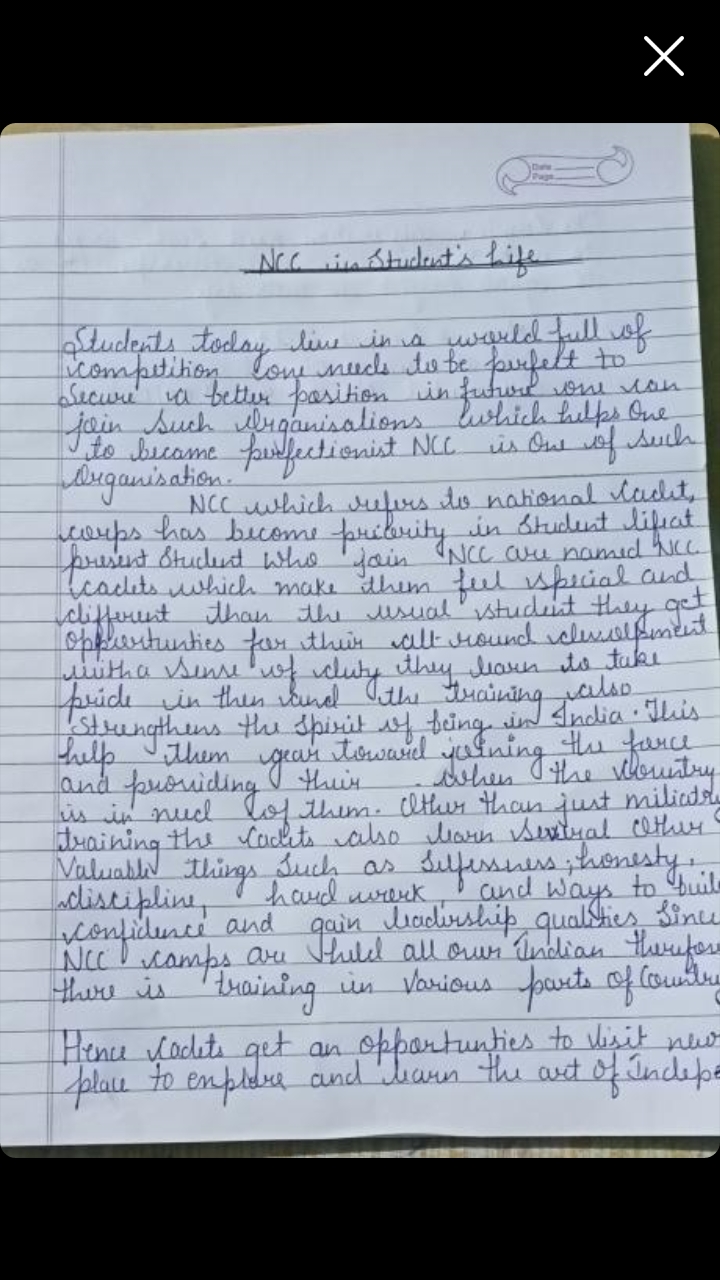 Date
Page
NCC in Student's Life
Students today live in a world full of
competition one needs to be perfect to
Secure a better position in future one can
join such Organisations which helps One
to became perfectionist NCC is One of such
Organisation.
NCC which refers to national Cadet,
corps has become priority in Student lifeat
present Student who join NCC are named NCC
cadets which make them feel special and
different than the usual student they get
opportunties for their all round development
with a sense of duty they learn to take
pride in then and the training also
Strengthens the spirit of being in India. This
help them gear toward joining the force
and providing their when the Country
is in need of them. Other than just military
training the Cadets also learn several Other
Valuable things such as selfessness, honesty,
discipline, hard work, and ways to
confidence and gain leadership qualities Since
NCC camps are held all over Indian
there is training in various parts of Country
Hence Cadets get an opportunties to visit new
place to explore and learn the art of